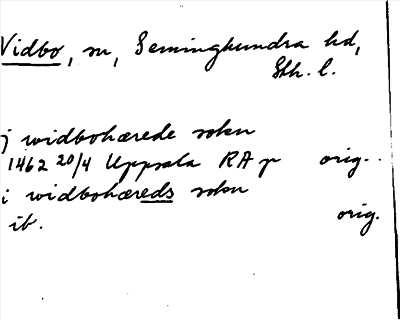 Vidbo, sn, Seminghundra hd,
Sth. l.
j widbohærede sokn
1462 20/4 Uppsala RA p orig.
i widbohæreds sokn
ib. orig.